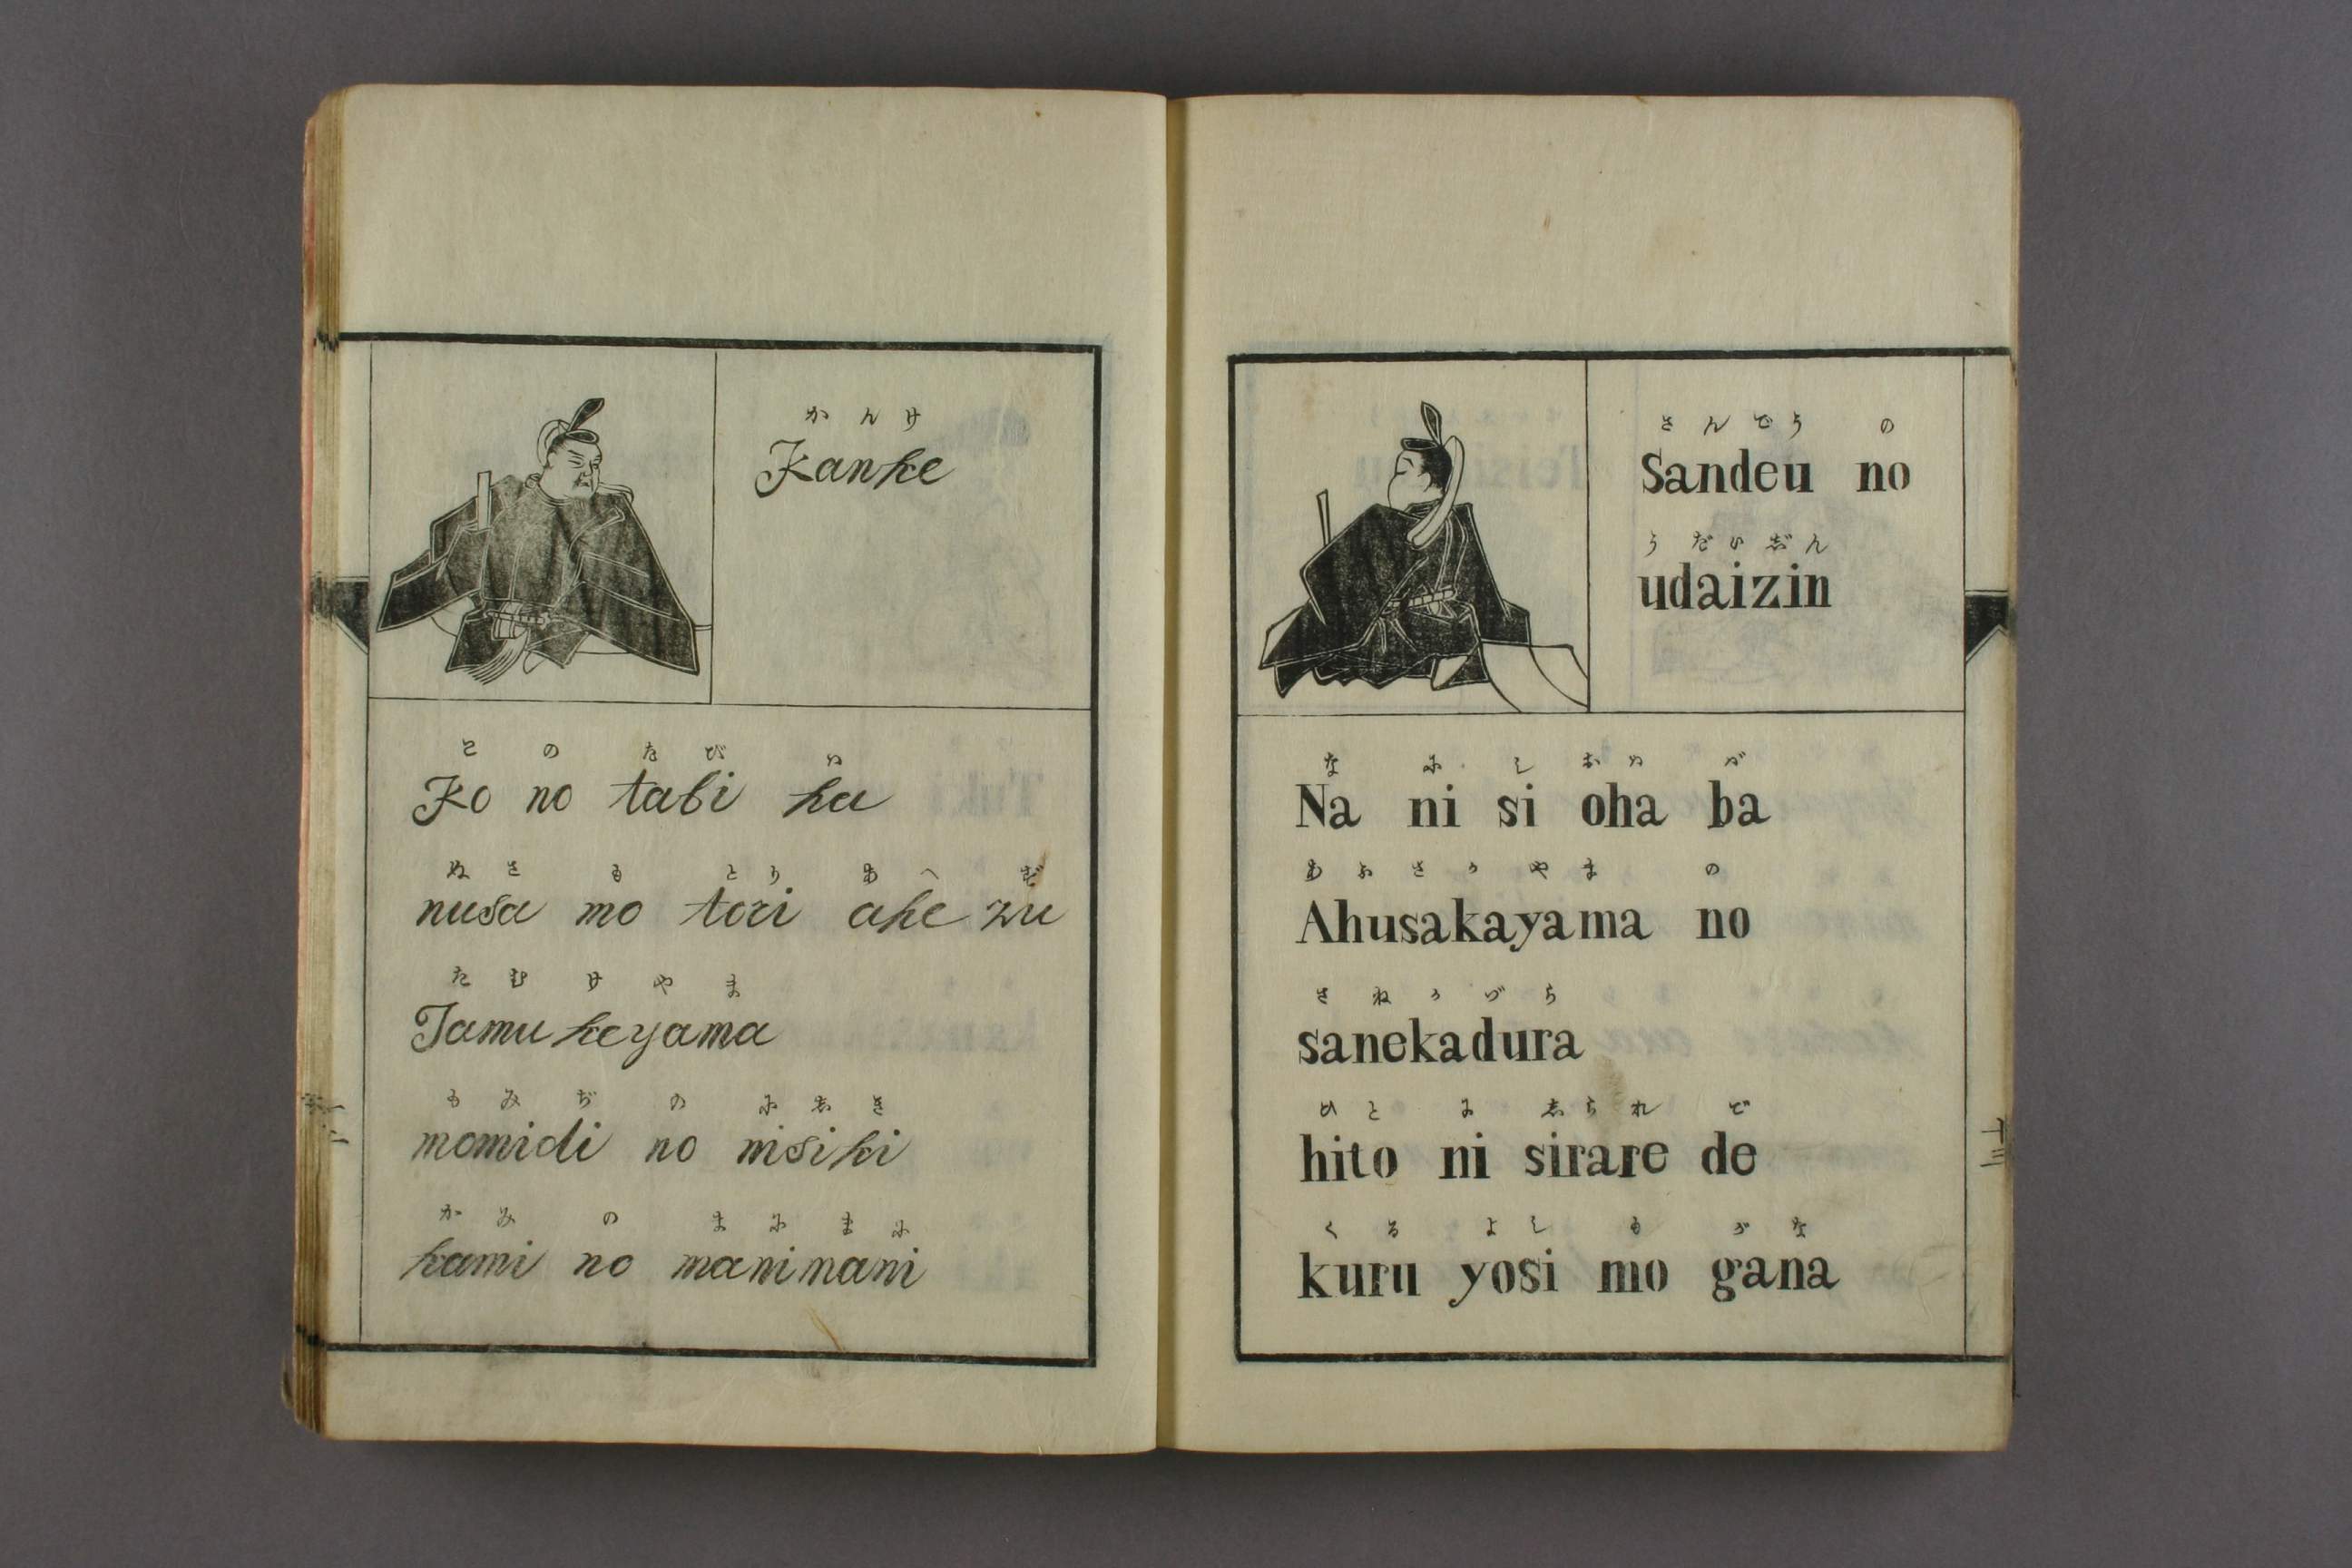 かんけ
Kanke
こ の たび は
Ko no tabi ha
ぬさ も とり あへ ず
nusa mo tori ahe zu
たむけやま
Tamukeyama
もみぢ の にしき
momidi no nisiki
かみ の まにまに
kami no manimani
さんでう の
Sandeu no
うだいじん
udaizin
な に し おは ば
Na ni si oha ba
あふさかやま の
Ahusakayama no
さねかづら
sanekadura
ひと に しられ で
hito ni sirare de
くる よし も がな
kuru yosi mo gana
十三